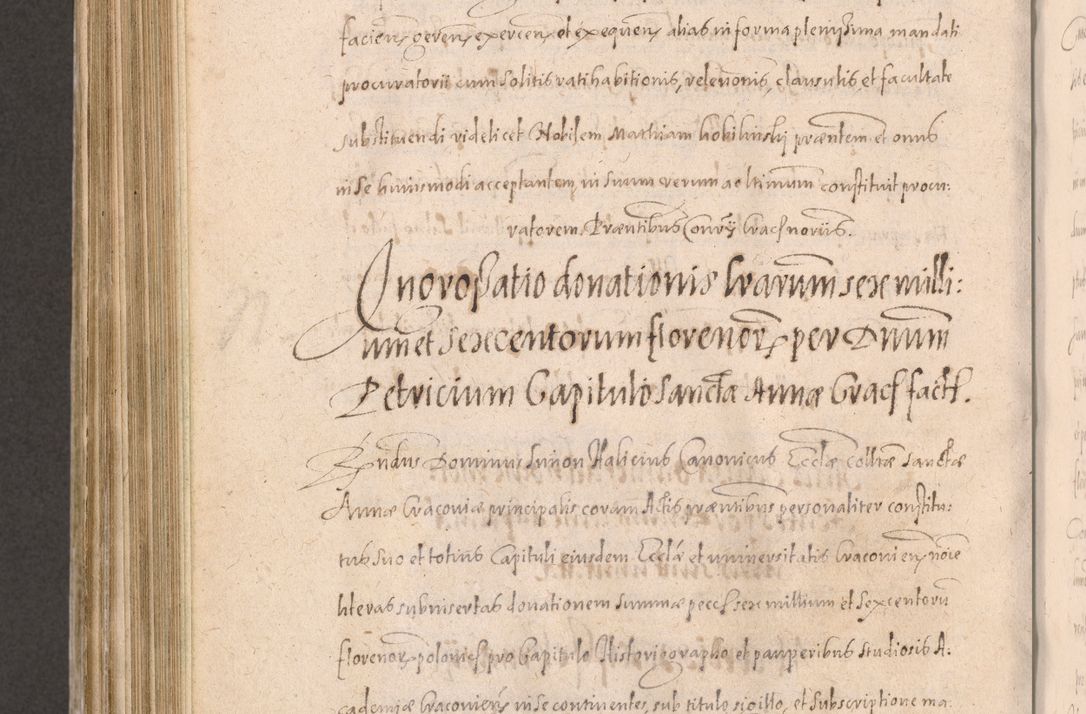 facien gerens exercens et exequens alias in forma plenissima mandati
procuratorii cum solitis ratihabitionis, relevonis, clausulis, et facultate
substituendi videlicet Nobilem Mathiam kobilinski præntem et onus
in se huiusmodi acceptantem, in suum verum ac ltimum constituit procu:
ratorem. Præntibus Cracf noriis.
Ingrossatio donationis lrarum sex milli:
um et sexcentorum florenor per Dnum
Petricium Capitulo Sanctæ Annæ Cracf fact.
Rndus Dominus Simon Halicius Canonicus Ecclæ colltæ sanctæ
Annæ Cracoviæ principalis coram Actis præntibus personaliter constitu:
tus suo et totius Capituli eiusdem Ecclæ et universitatis Cracovien noie
literas subinsertas donationem summæ pecc sex millium et sexcentorū
florenor polonicf pro Capitulo Historiographo et pauperibus studiosis A:
cademiæ Cracovien in se continentes, sub titulo sigillo, et subscriptione ma: